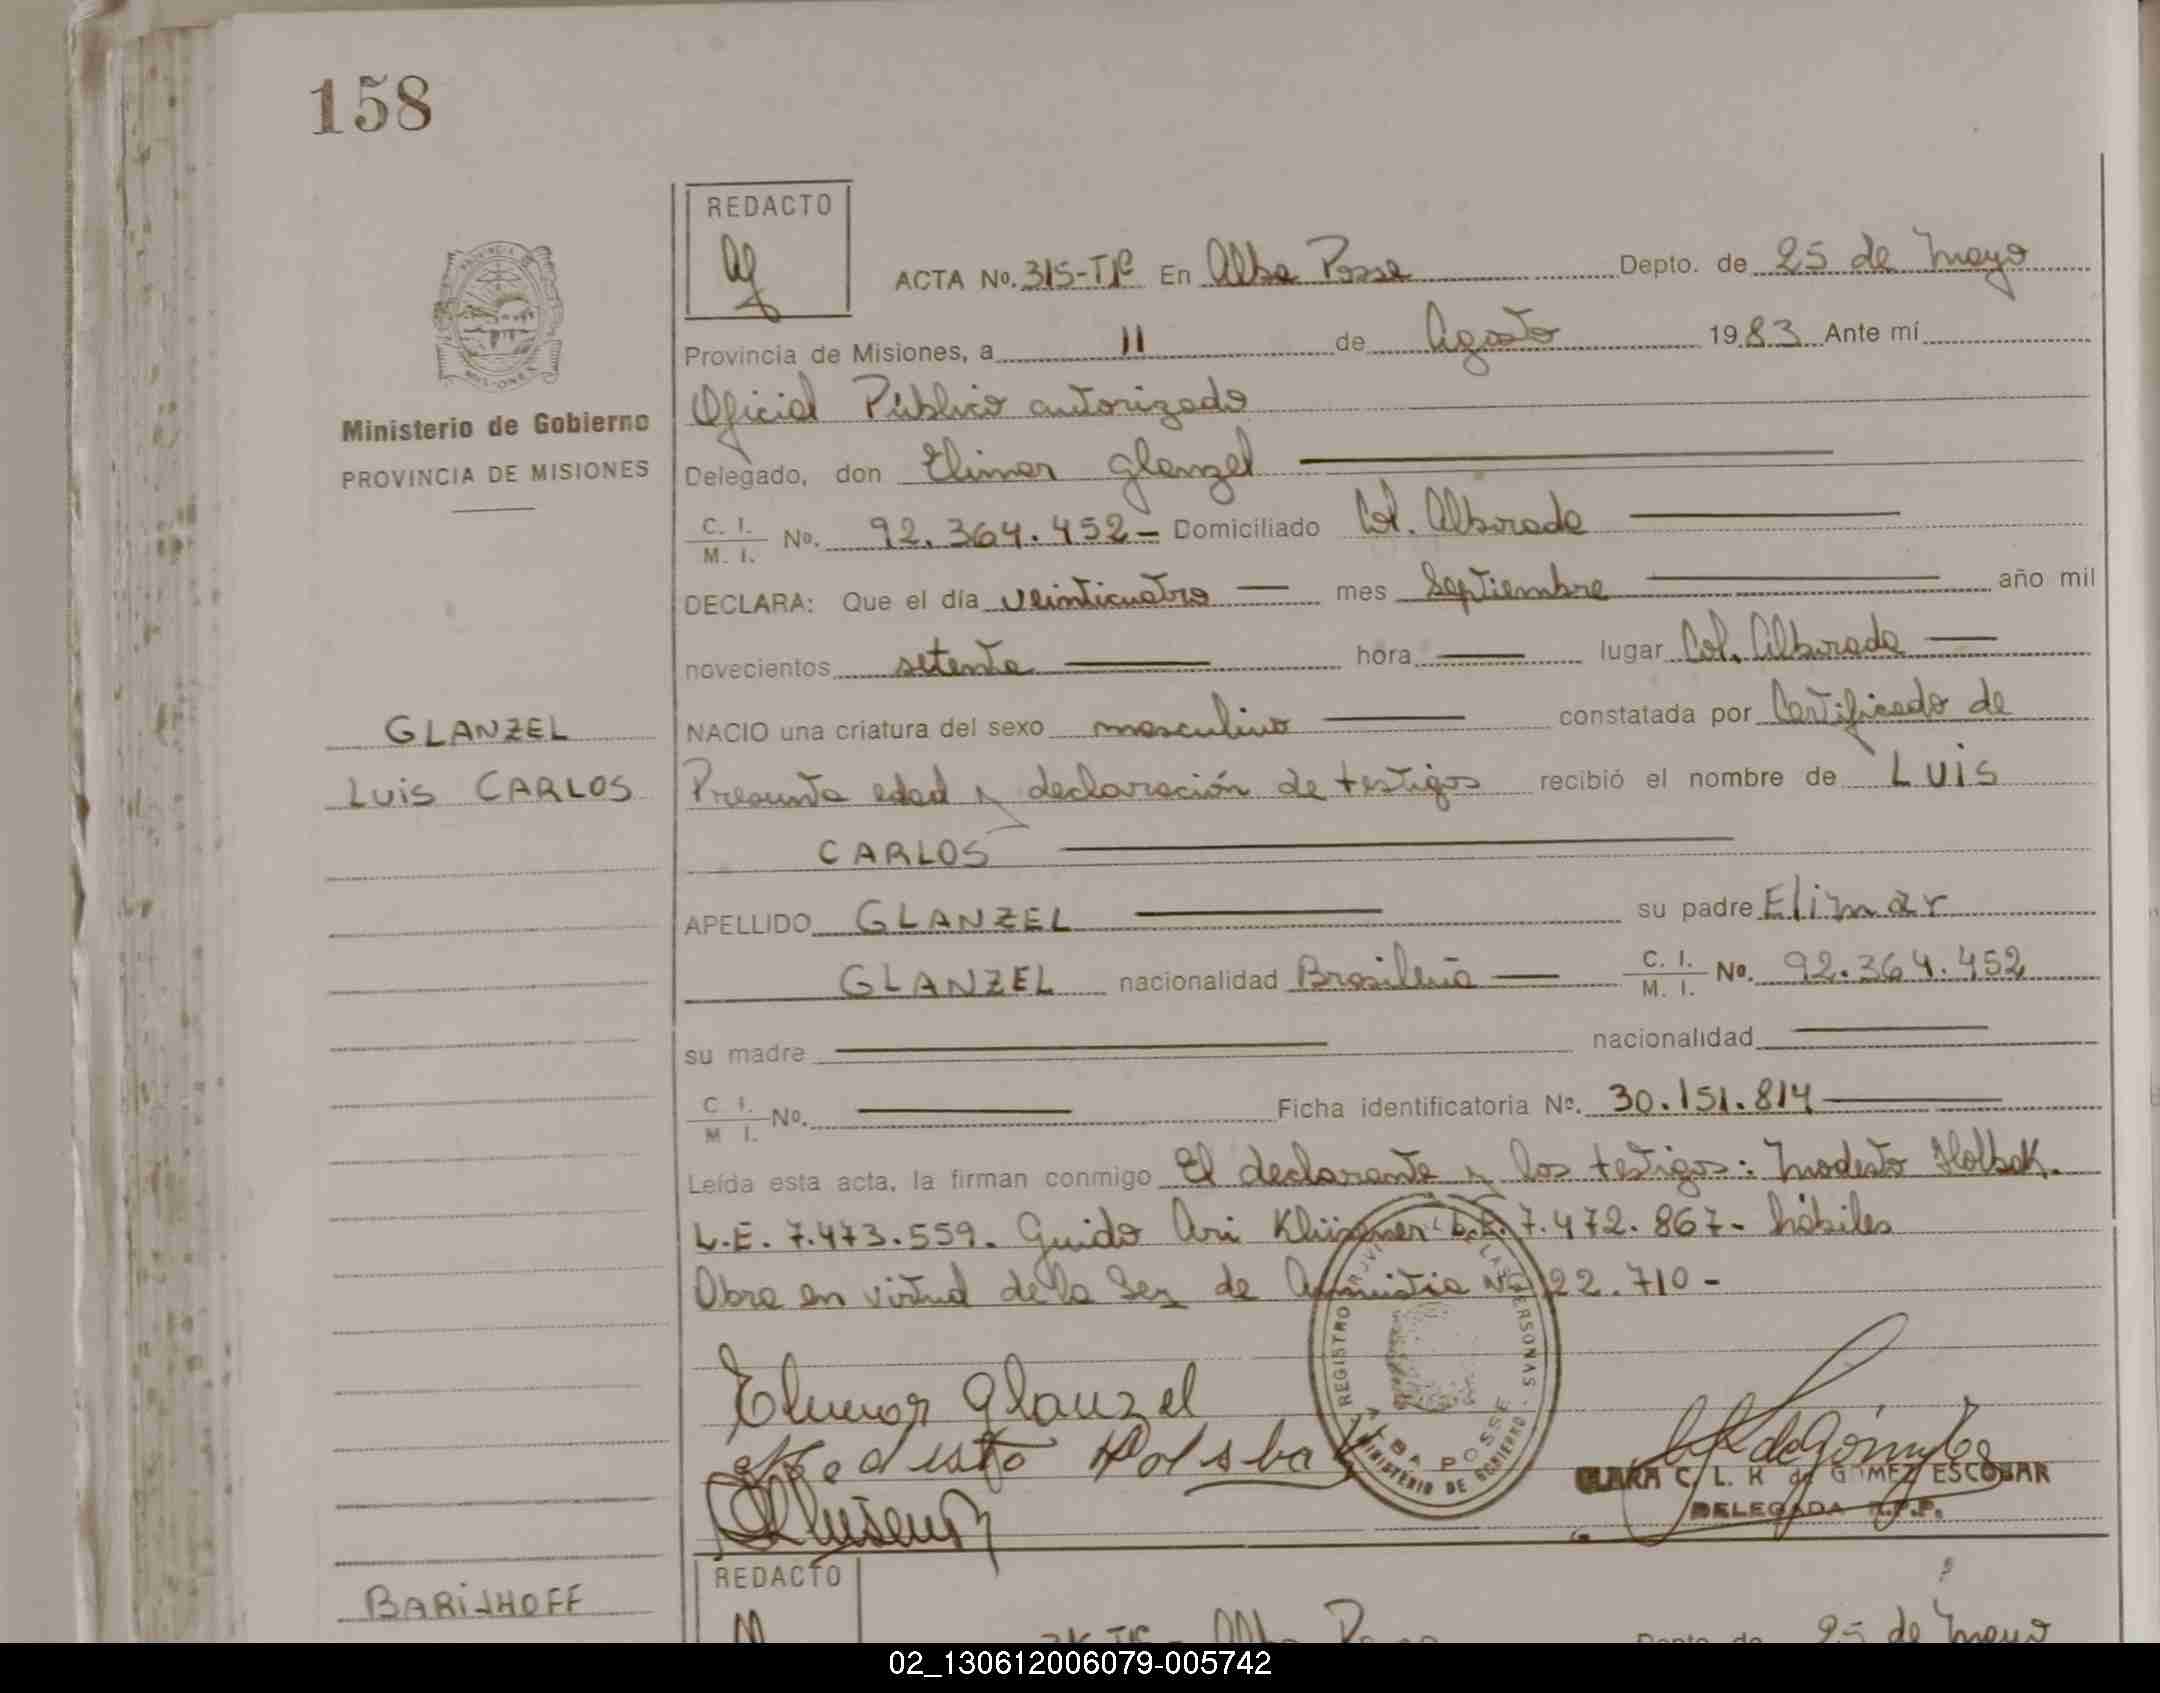 158
REDACTO
ACTA No. 315-TIº En Alba Posse Depto. de 25 de Mayo
Provincia de Misiones, a 11 de Agosto 1983 Ante mí
Oficial Público autorizado
Ministerio de Gobierno
PROVINCIA DE MISIONES
Delegado, don Elimar Glanzel
C. I. / M. I. No. 92.364.452- Domiciliado Col. Alborada
DECLARA: Que el día veinticuatro mes Septiembre año mil
novecientos setenta hora lugar Col. Alborada
GLANZEL
LUIS CARLOS
NACIO una criatura del sexo masculino constatada por Certificado de
Presunta edad y declaración de testigos recibió el nombre de LUIS
CARLOS
APELLIDO GLANZEL su padre Elimar
GLANZEL nacionalidad Brasileña C. I. / M. I. No. 92.364.452
su madre nacionalidad
C I. / M I. No. Ficha identificatoria Nº. 30.151.814
Leída esta acta, la firman conmigo El declarante y los testigos: Modesto Holsbak.
L.E. 7.473.559. Guido Ari L.E. 7.472.867- hábiles
Obra en virtud de la Ley de Amnistia Nº 22.710-
Elimar Glanzel
Modesto Holsbak
REGISTRO PROVINCIAL DE LAS PERSONAS
ALBA POSSE
MINISTERIO DE GOBIERNO
CLARA C. L. K de GOMEZ ESCOBAR
DELEGADA R.P.P.
REDACTO
BARIJHOFF
Alba Posse Depto. de 25 de Mayo
02_130612006079-005742